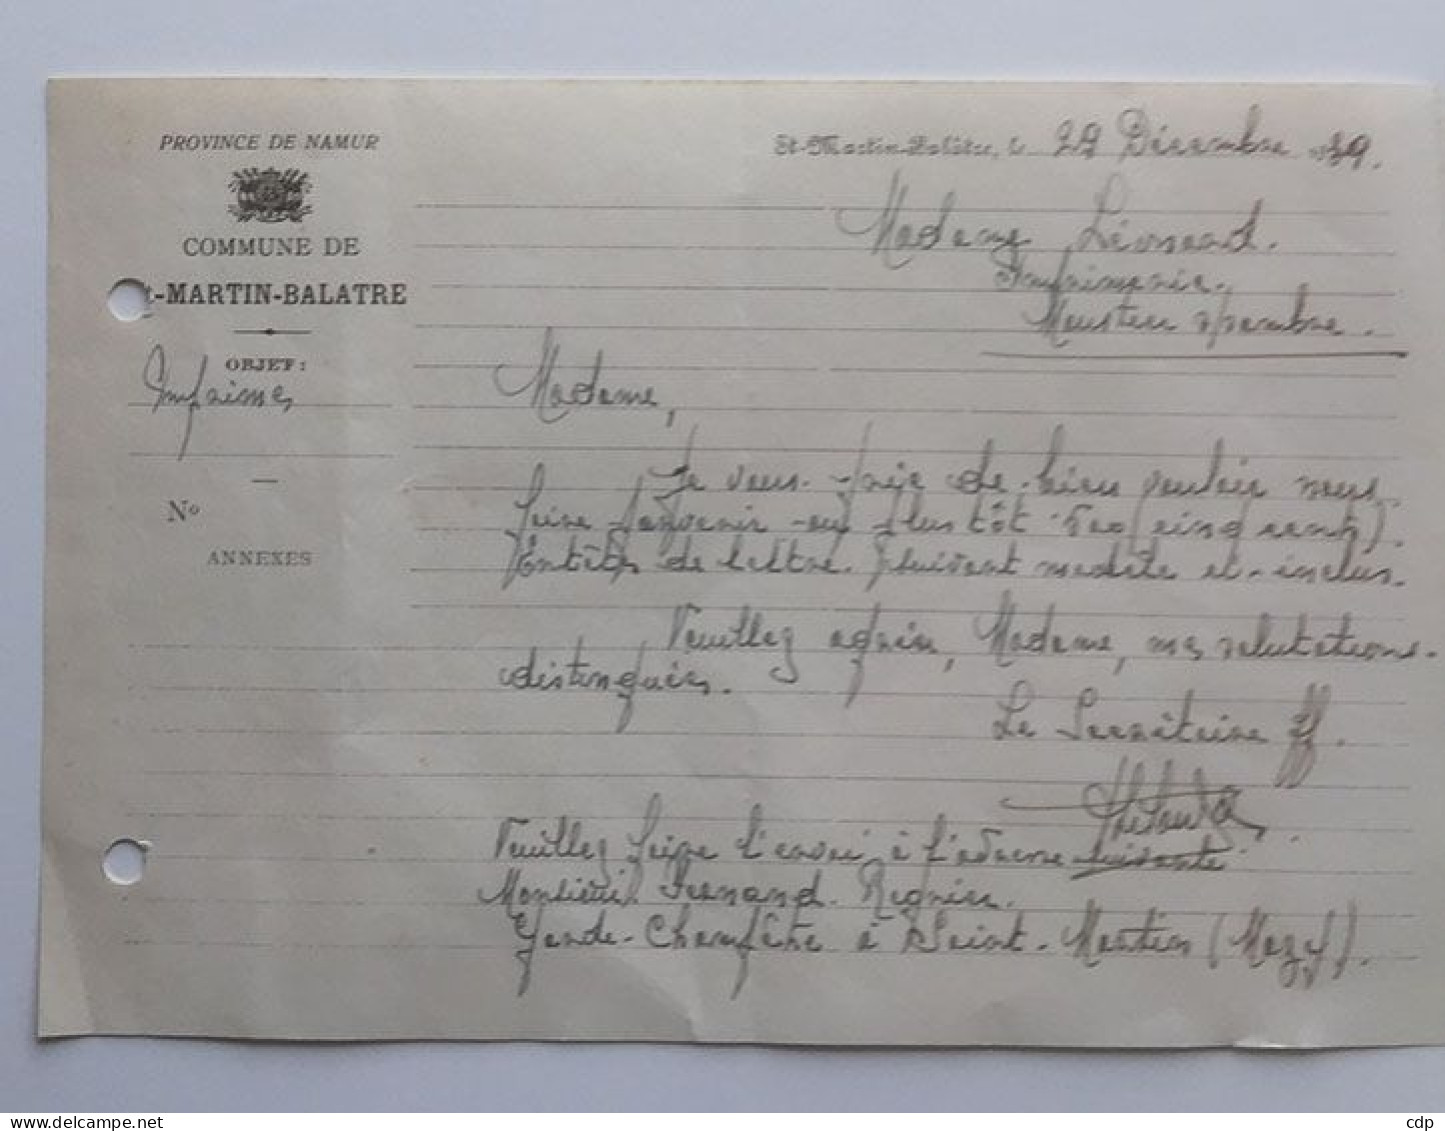 PROVINCE DE NAMUR
COMMUNE DE
t-MARTIN-BALATRE
OBJET:
Imprimés
No
ANNEXES
St-Martin-Balâtre, le 29 Décembre 1949.
Madame Léonard.
Imprimerie.
Moustier s/Sambre.
Madame,
Je vous prie de bien vouloir nous
faire parvenir au plus tôt 500 (cinq cents)
Entêtes de lettre suivant modèle ci-inclus.
Veuillez agréer, Madame, mes salutations
distinguées.
Le Secrétaire ff.
Veuillez faire l'envoi à l'adresse suivante
Monsieur Fernand Regnier.
Garde-Champêtre à Saint-Martin (Mazy).
delcampe.net
cdp